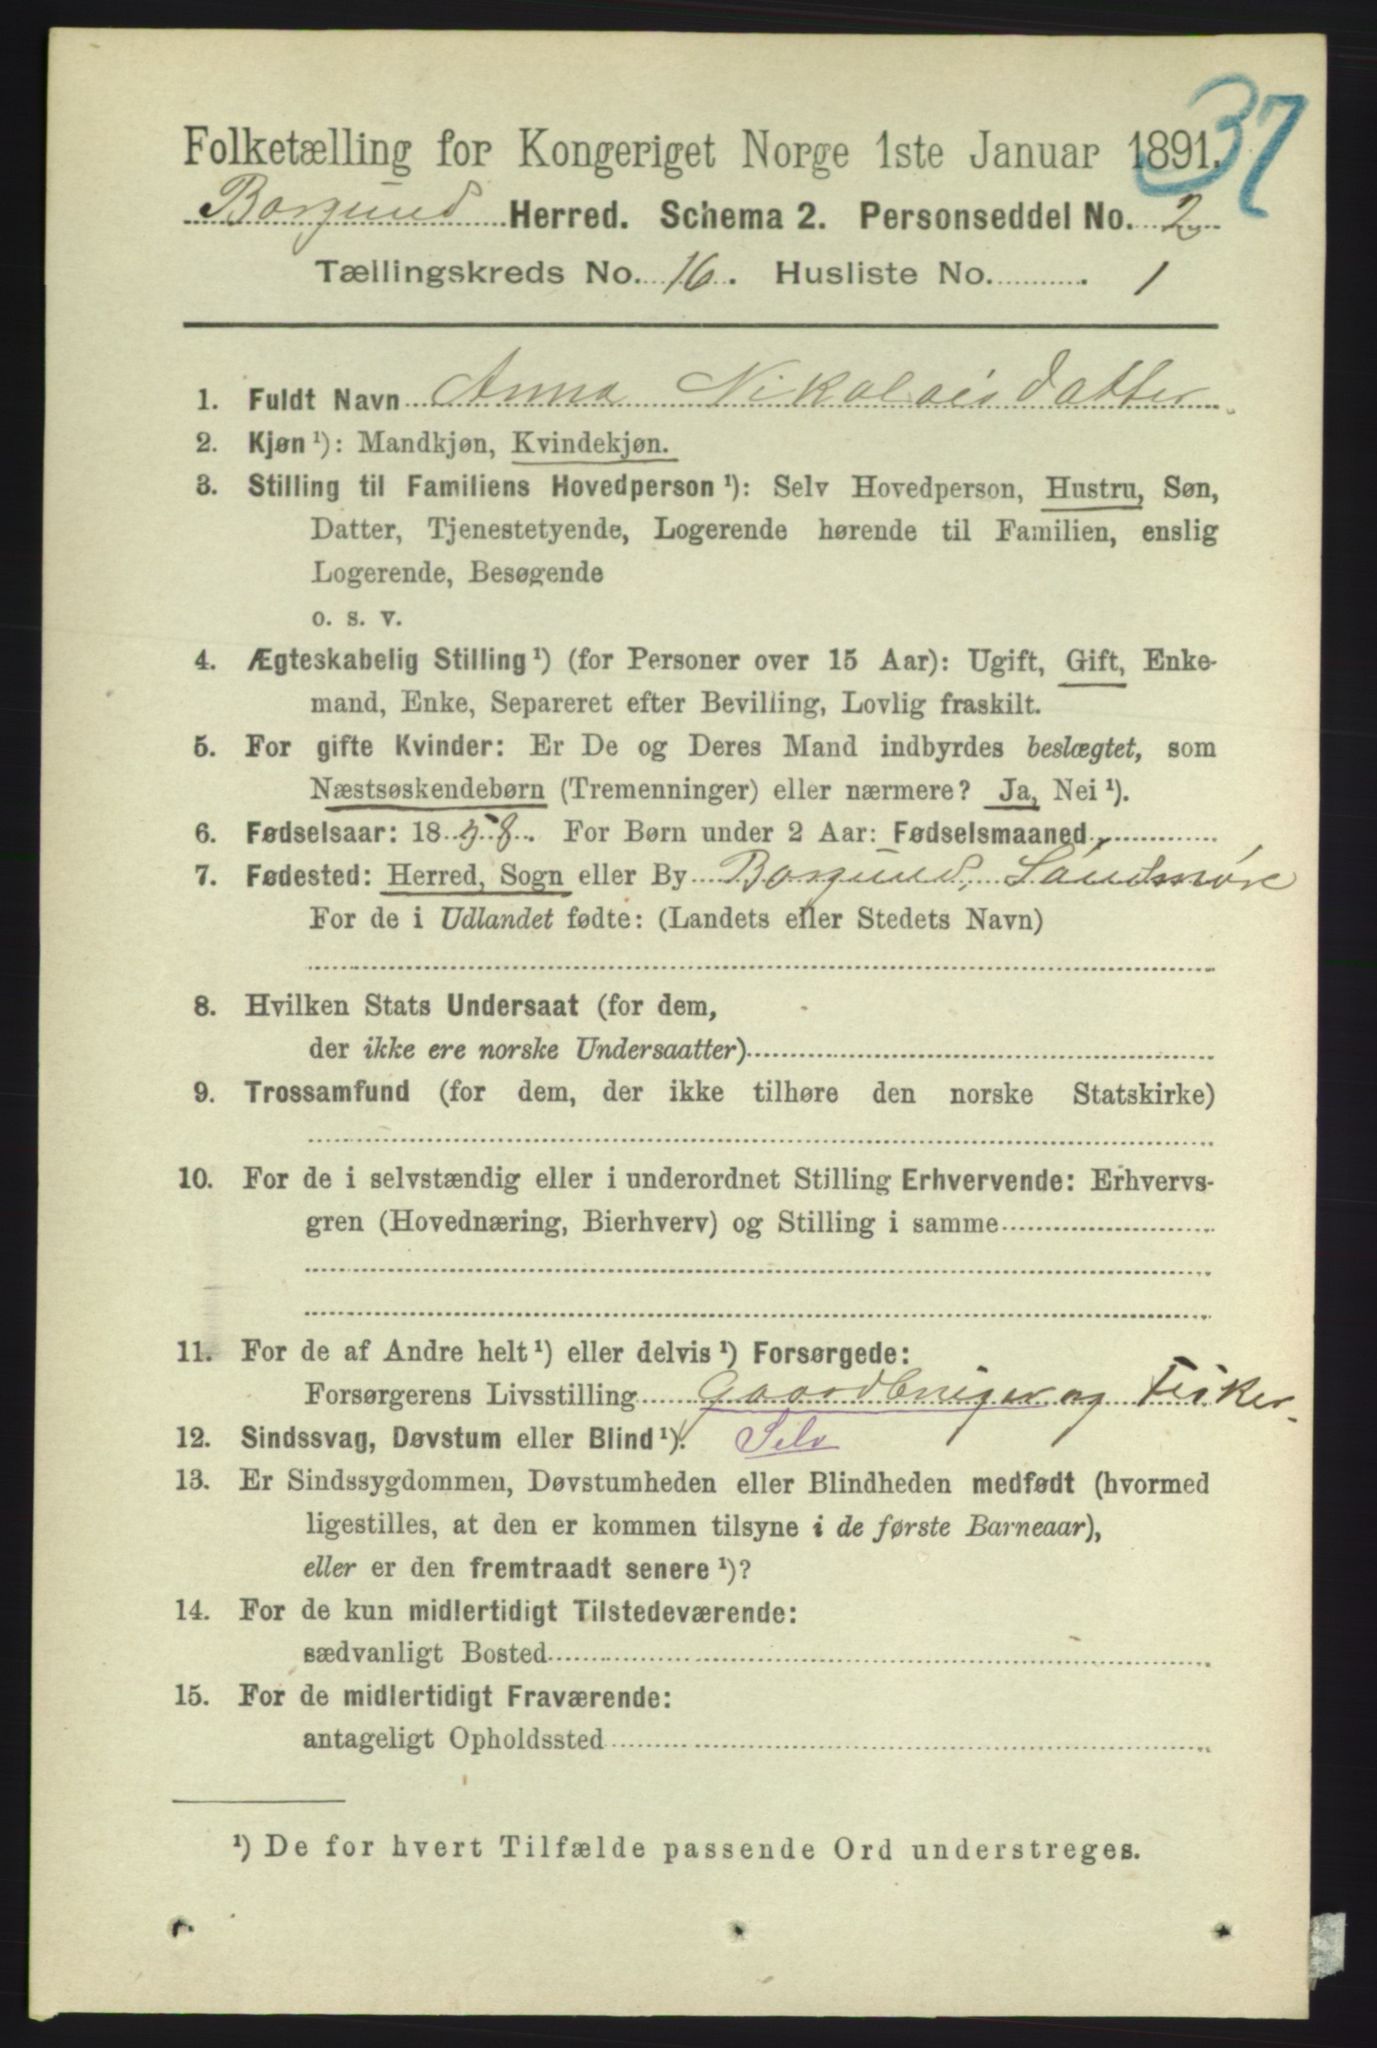 37
Folketælling for Kongeriget Norge 1ste Januar 1891.
Borgund Herred. Schema 2. Personseddel No. 2
Tællingskreds No. 16. Husliste No. 1
1. Fuldt Navn Anna Nikolaisdatter
2. Kjøn ¹): Mandkjøn, Kvindekjøn.
3. Stilling til Familiens Hovedperson ¹): Selv Hovedperson, Hustru, Søn,
Datter, Tjenestetyende, Logerende hørende til Familien, enslig
Logerende, Besøgende
o. s. v.
4. Ægteskabelig Stilling ¹) (for Personer over 15 Aar): Ugift, Gift, Enke-
mand, Enke, Separeret efter Bevilling, Lovlig fraskilt.
5. For gifte Kvinder: Er De og Deres Mand indbyrdes beslægtet, som
Næstsøskendebørn (Tremenninger) eller nærmere? Ja, Nei ¹).
6. Fødselsaar: 1858. For Børn under 2 Aar: Fødselsmaaned
7. Fødested: Herred, Sogn eller By Borgund, Søndmøre
For de i Udlandet fødte: (Landets eller Stedets Navn)
8. Hvilken Stats Undersaat (for dem,
der ikke ere norske Undersaatter)
9. Trossamfund (for dem, der ikke tilhøre den norske Statskirke)
10. For de i selvstændig eller i underordnet Stilling Erhvervende: Erhvervs-
gren (Hovednæring, Bierhverv) og Stilling i samme
11. For de af Andre helt ¹) eller delvis ¹) Forsørgede:
Forsørgerens Livsstilling Gaardbruger og Fisker
12. Sindssvag, Døvstum eller Blind ¹). Selv
13. Er Sindssygdommen, Døvstumheden eller Blindheden medfødt (hvormed
ligestilles, at den er kommen tilsyne i de første Barneaar),
eller er den fremtraadt senere ¹)?
14. For de kun midlertidigt Tilstedeværende:
sædvanligt Bosted
15. For de midlertidigt Fraværende:
antageligt Opholdssted
¹) De for hvert Tilfælde passende Ord understreges.